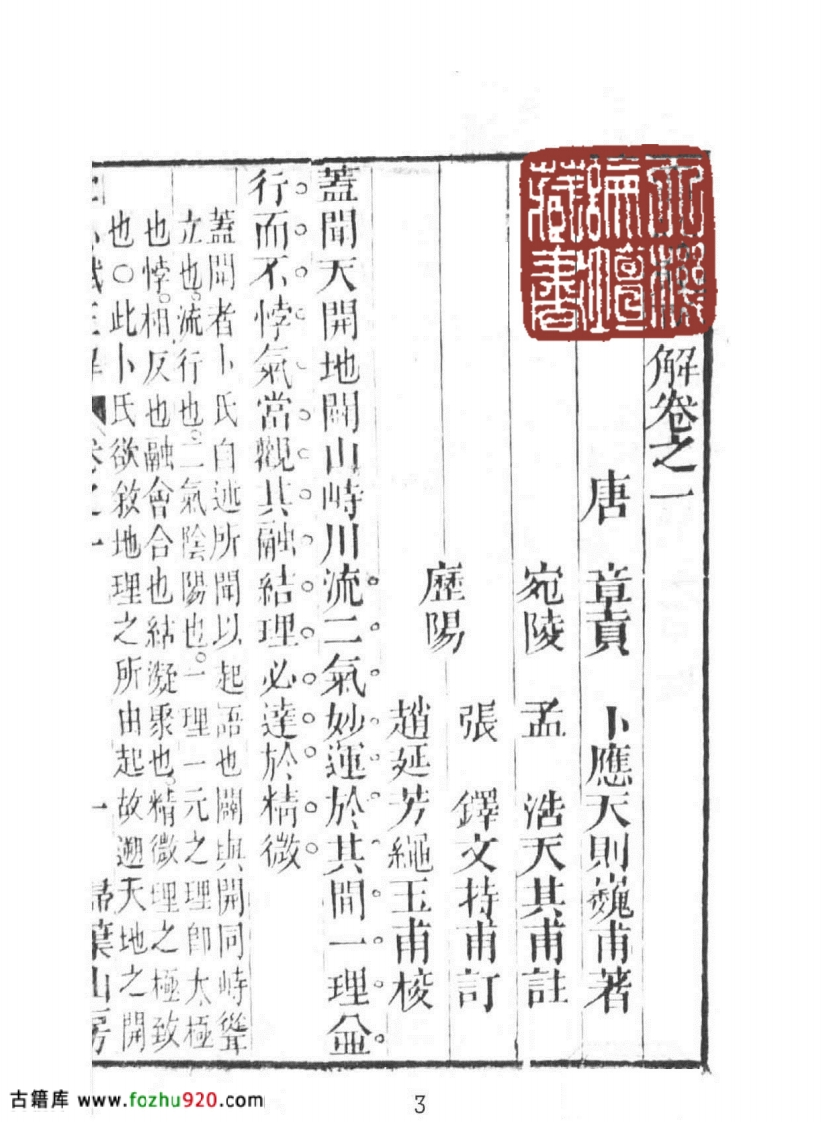 解卷之一
唐 章貢 卜應天則巍甫著
宛陵 孟 浩天其甫註
歷陽
張 鐸文持甫訂
趙延芳繩玉甫梭
蓋聞天開地闢山峙川流二氣妙運於其間一理並
行而不悖氣當觀其融結理必達於精微
蓋聞者卜氏自述所聞以起語也闢與開同峙聳
立也流行也二氣陰陽也一理一元之理即太極
也悖相反也融會合也結凝聚也精微理之極致
也○此卜氏欲敘地理之所由起故遡天地之開
卷之一 一 掃葉山房
古籍库 www.fozhu920.com
3